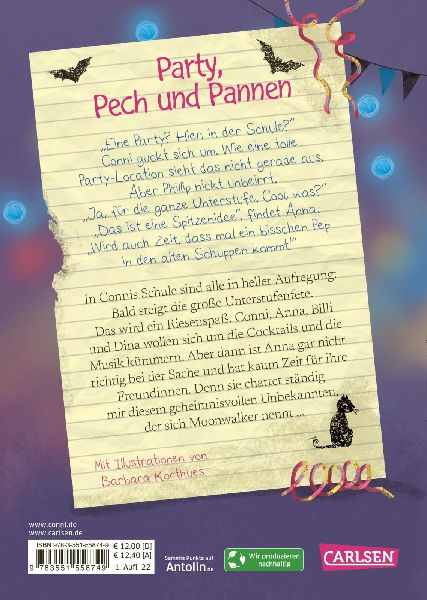 Party,
Pech und Pannen
„Eine Party? Hier, in der Schule?"
Conni guckt sich um. Wie eine tolle
Party-Location sieht das nicht gerade aus.
Aber Phillip nickt unbeirrt.
„Ja, für die ganze Unterstufe. Cool, was?"
„Das ist eine Spitzenidee", findet Anna.
„Wird auch Zeit, dass mal ein bisschen Pep
in den alten Schuppen kommt!"
In Connis Schule sind alle in heller Aufregung:
Bald steigt die große Unterstufenfete.
Das wird ein Riesenspaß. Conni, Anna, Billi
und Dina wollen sich um die Cocktails und die
Musik kümmern. Aber dann ist Anna gar nicht
richtig bei der Sache und hat kaum Zeit für ihre
Freundinnen. Denn sie chattet ständig
mit diesem geheimnisvollen Unbekannten,
der sich Moonwalker nennt ...
Mit Illustrationen von
Barbara Korthues
www.conni.de
www.carlsen.de
ISBN 978-3-551-55874-9
9 783551 558749
€ 12,00 [D]
€ 12,40 [A]
1. Aufl. 22
Sammle Punkte auf
Antolin.de
Wir produzieren
nachhaltig
CARLSEN